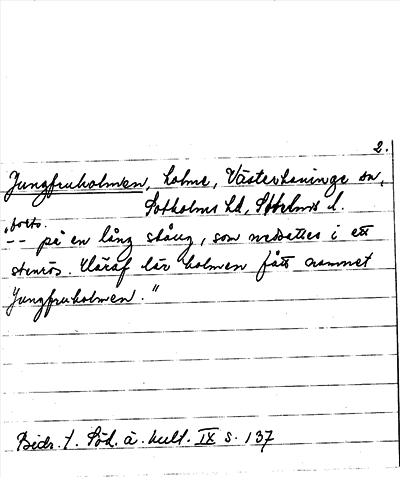 2.
Jungfruholmen, holme, Västerhaninge sn,
Sotholms hd, Sthlms l.
forts.
-- på en lång stång, som nedsattes i ett
stenrös. Häraf lär holmen fått namnet
Jungfruholmen."
Bidr. t. Söd. ä. kult. IX s. 137